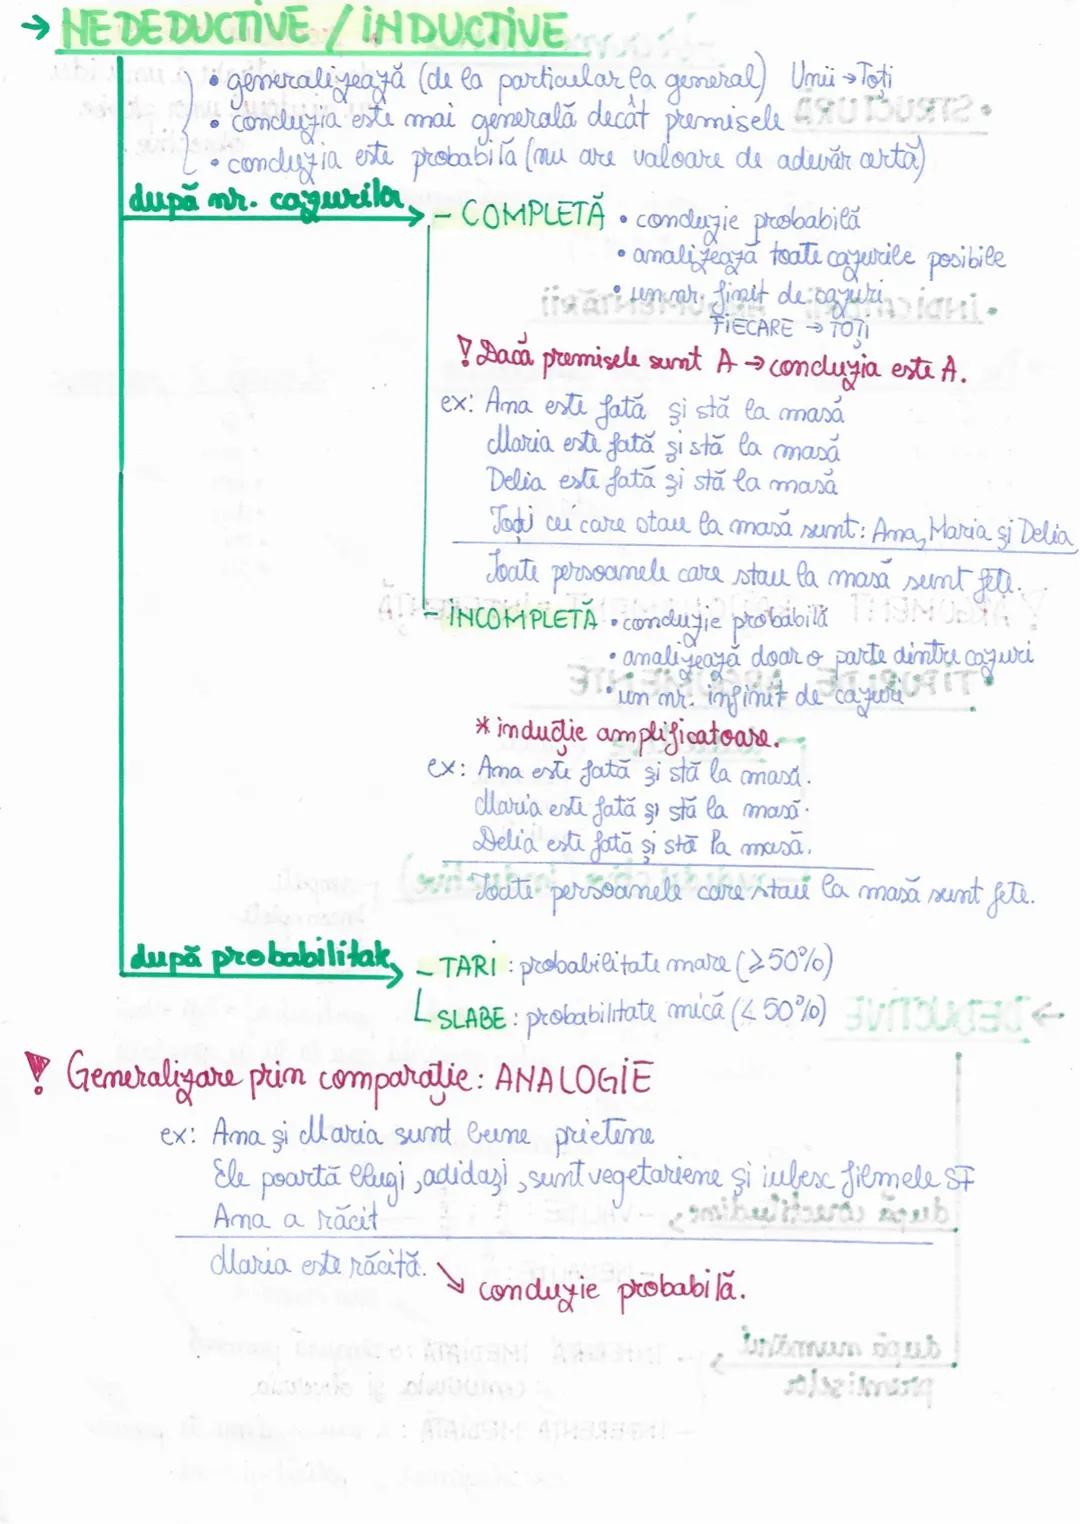 → NEDEDUCTIVE / INDUCTIVE
• generalizează (de la particular la general) Unii → Toți
• concluzia este mai generală decât premisele
• concluzia este probabilă (nu are valoare de adevăr certă)
după nr. cazurilor
- COMPLETĂ • concluzie probabilă
• analizează toate cazurile posibile
• un nr. finit de cazuri
FIECARE → TOȚI
! Dacă premisele sunt A → concluzia este A.
ex: Ana este fată și stă la masă
Maria este fată și stă la masă
Delia este fată și stă la masă
Toți cei care stau la masă sunt: Ana, Maria și Delia
Toate persoanele care stau la masă sunt fete.
- INCOMPLETĂ • concluzie probabilă
• analizează doar o parte dintre cazuri
• un nr. infinit de cazuri
* inducție amplificatoare.
ex: Ana este fată și stă la masă.
Maria este fată și stă la masă.
Delia este fată și stă la masă.
Toate persoanele care stau la masă sunt fete.
după probabilitate
- TARI : probabilitate mare (≥50%)
SLABE : probabilitate mică (≤ 50%)
! Generalizare prin comparație: ANALOGIE
ex: Ana și Maria sunt bune prietene
Ele poartă blugi, adidași, sunt vegetariene și iubesc filmele SF
Ana a răcit
Maria este răcită.
↘ concluzie probabilă.